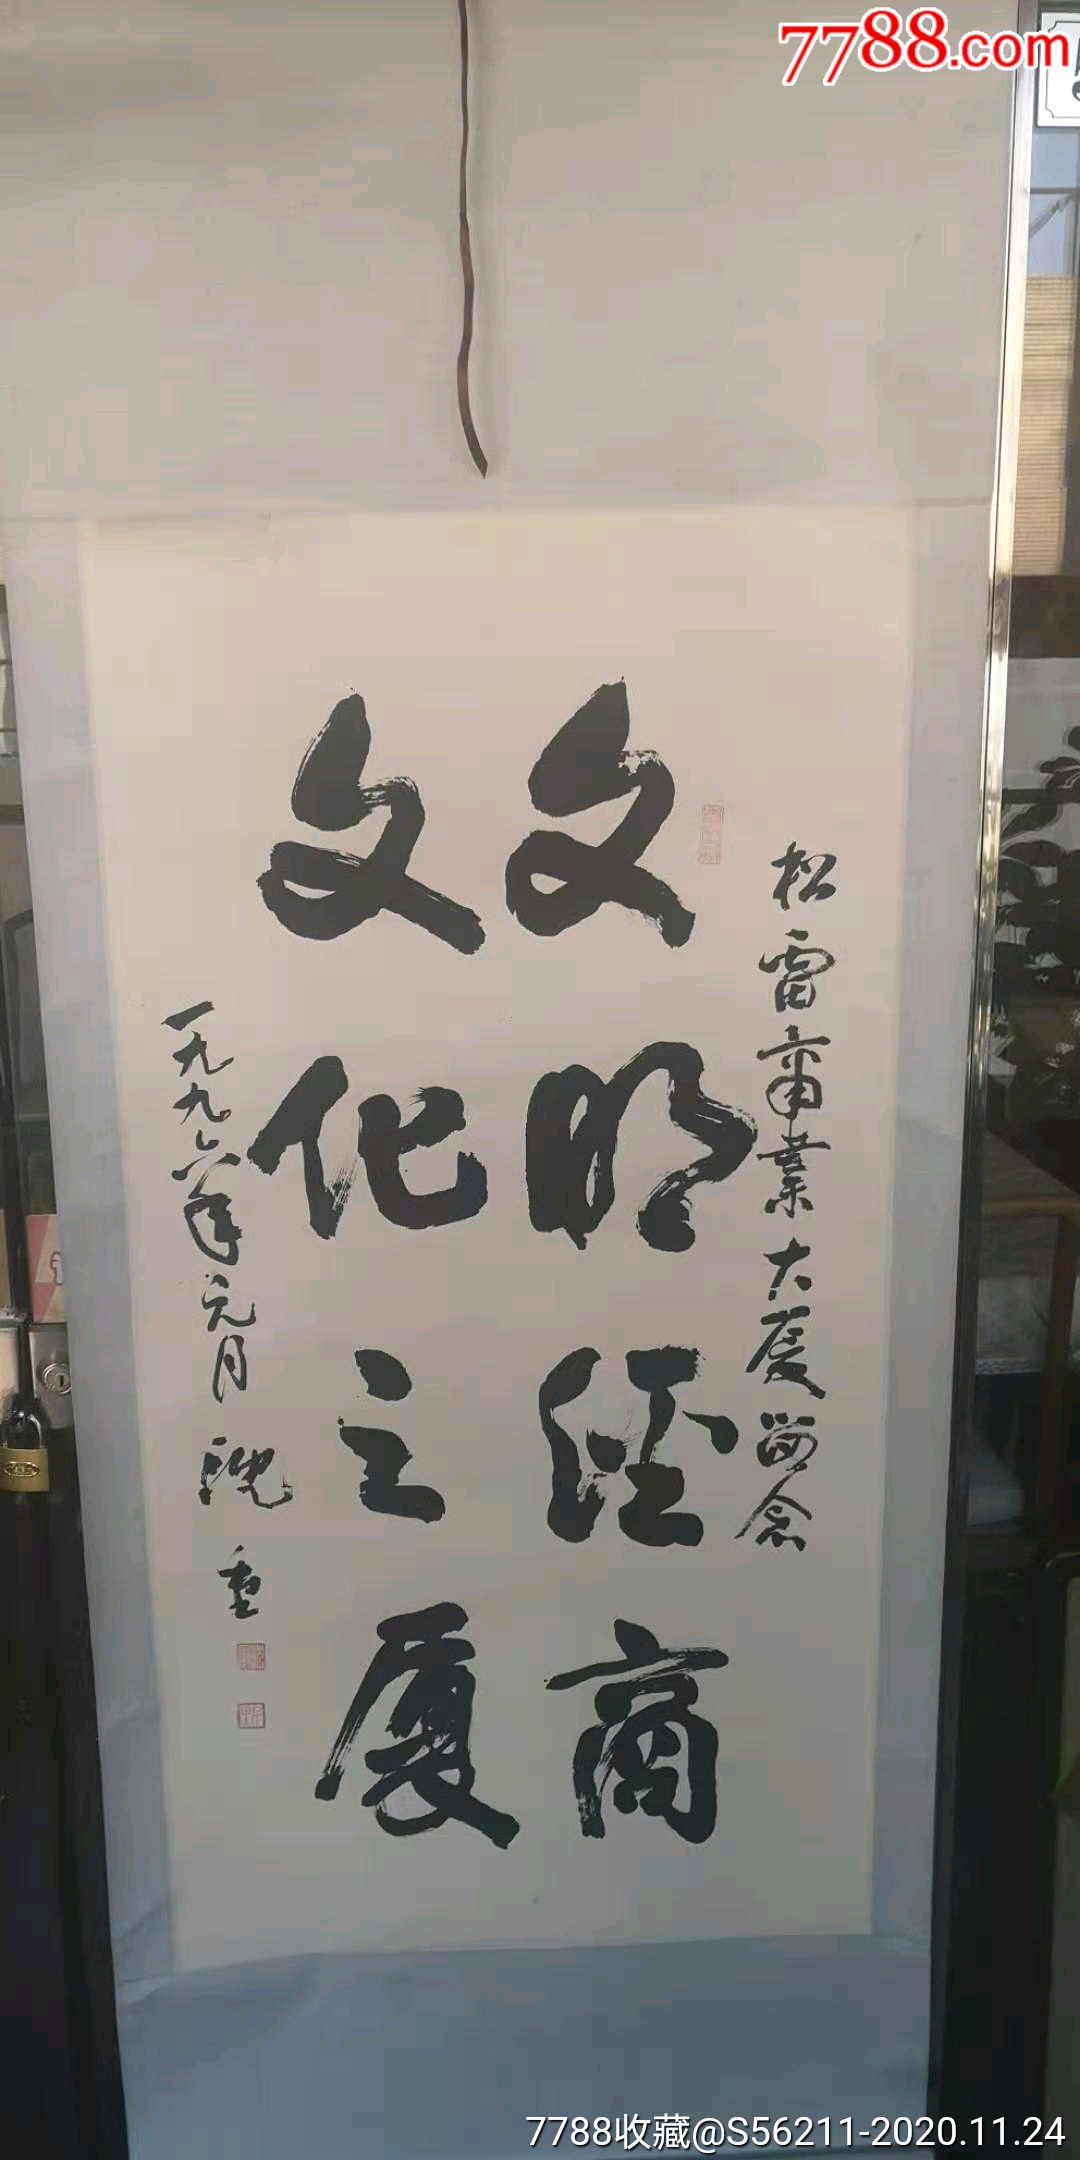 7788.com
松雷商業大厦留念
文明经商
文化之厦
一九九六年元月
沈重
7788收藏@S56211-2020.11.24